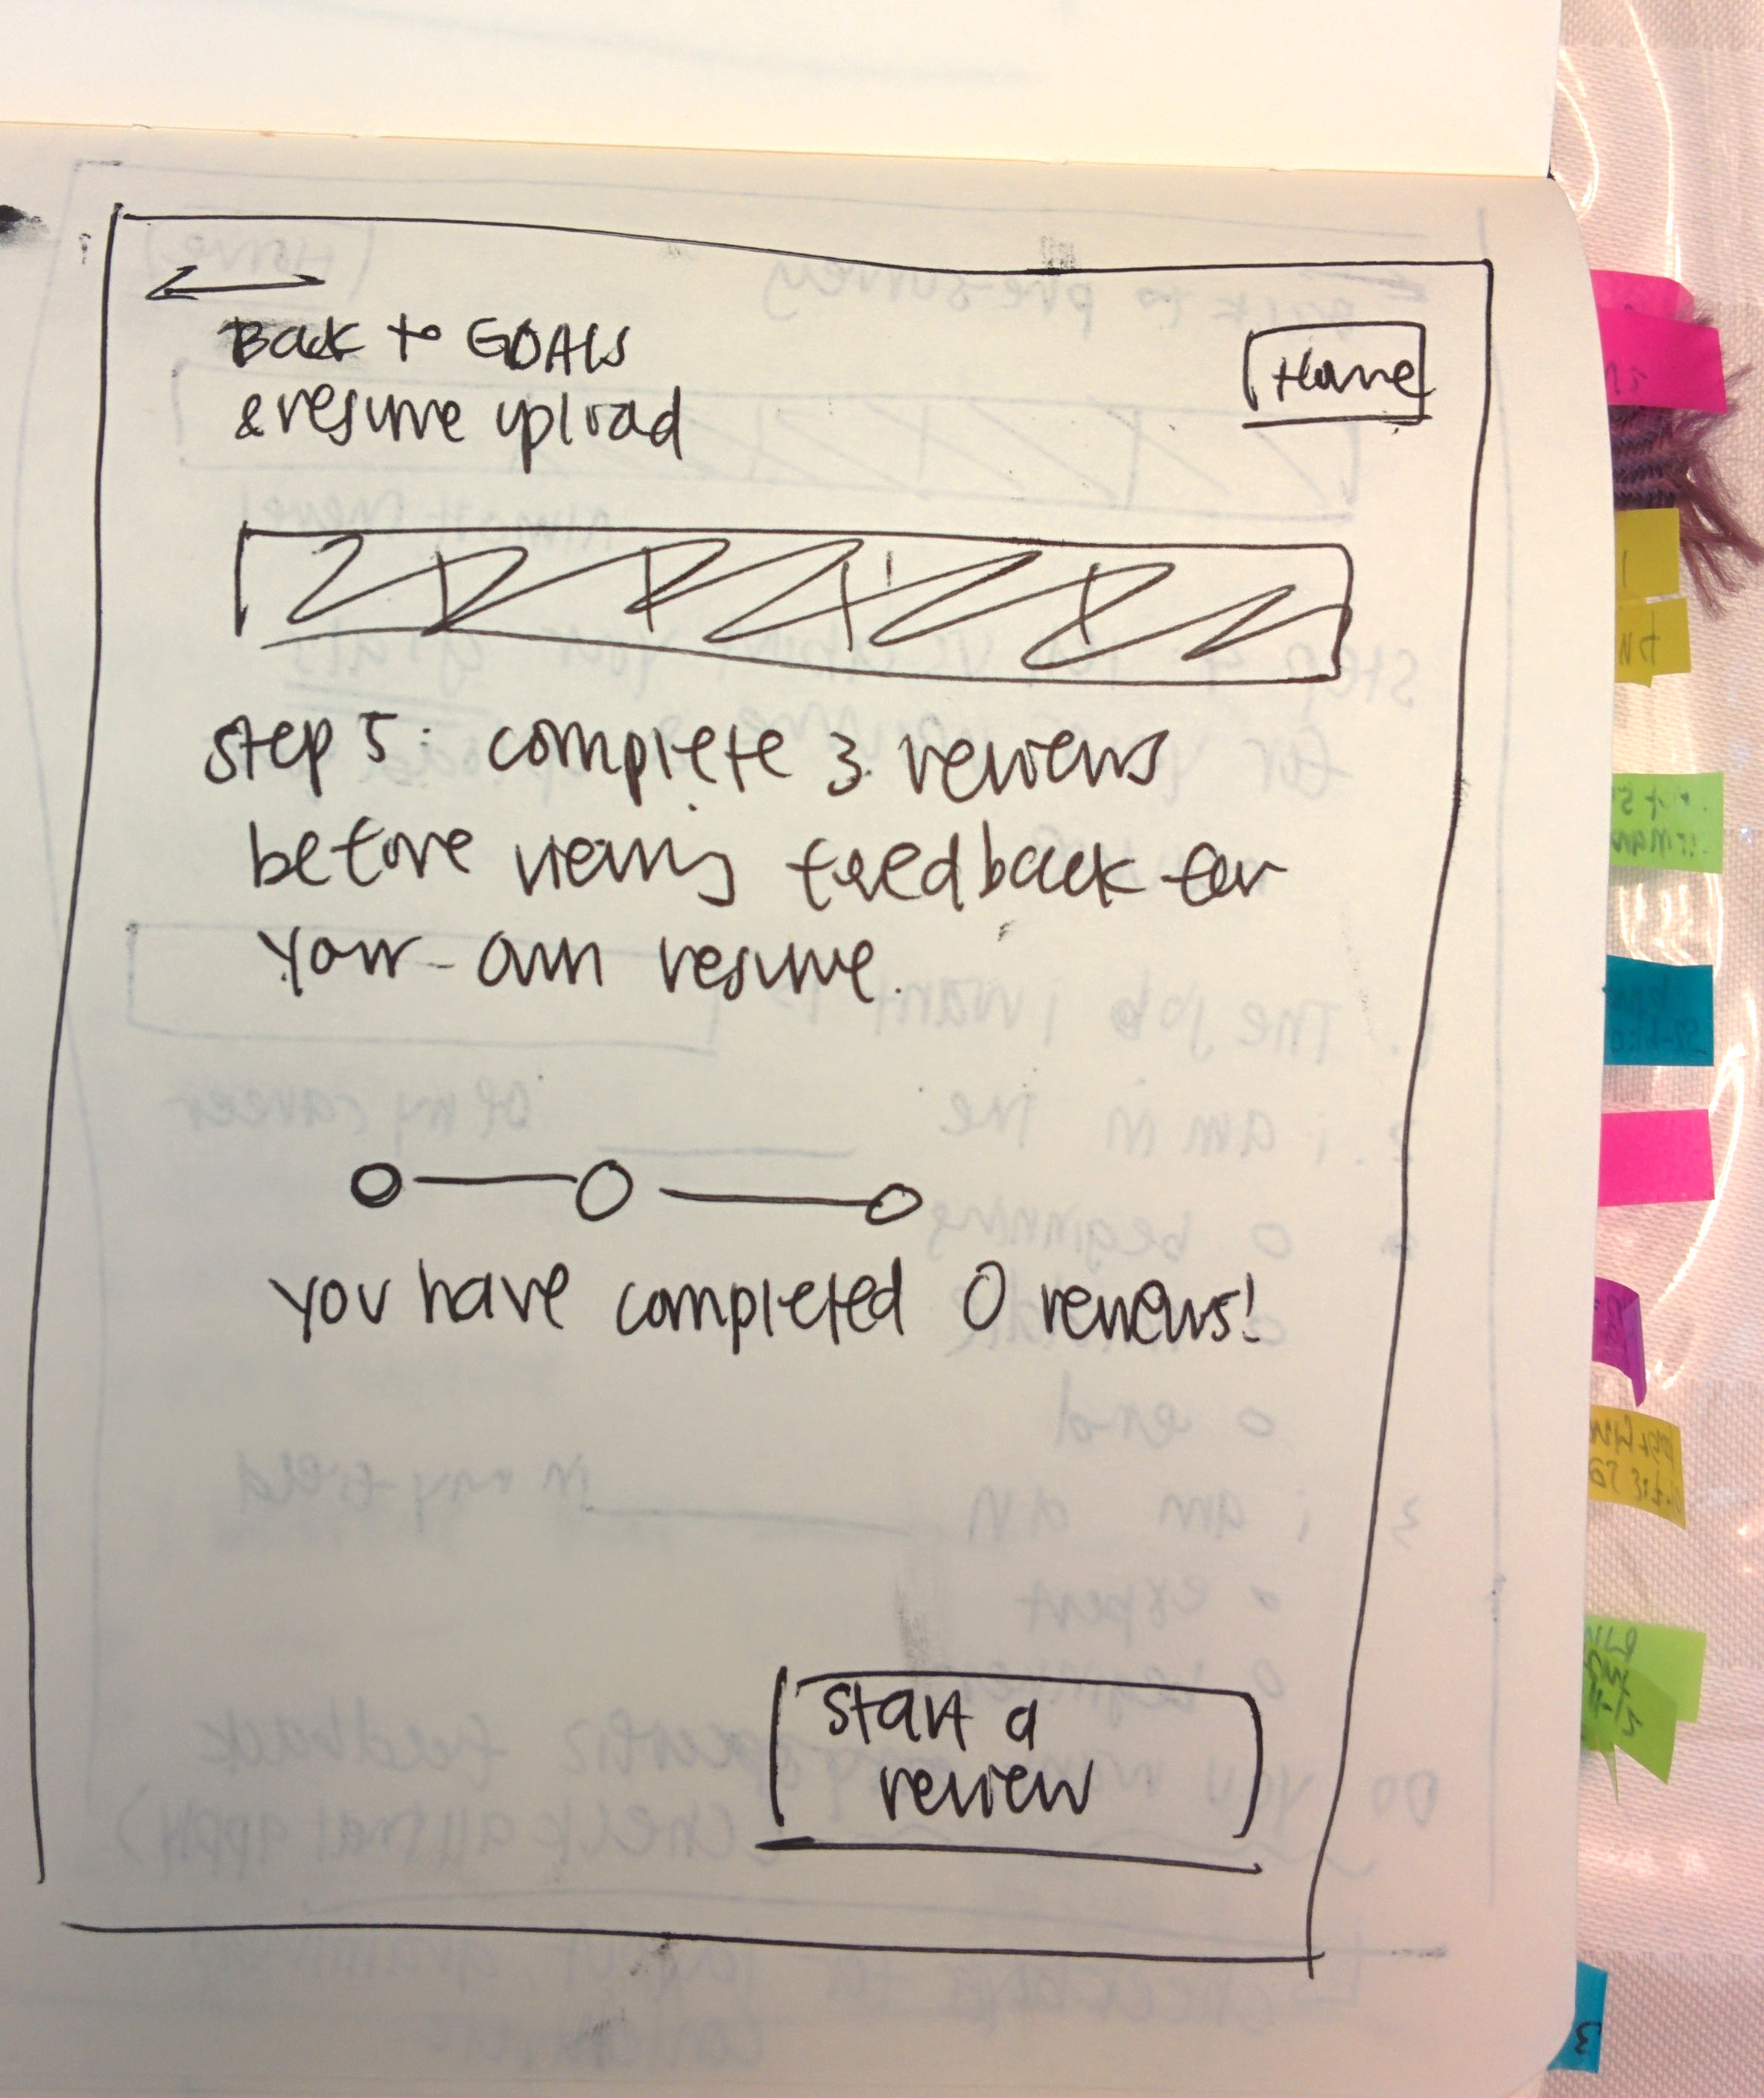 Back to GOALS
& resume upload
Home
Step 5: complete 3 reviews
before viewing feedback for
your own resume.
you have completed 0 reviews!
start a
review